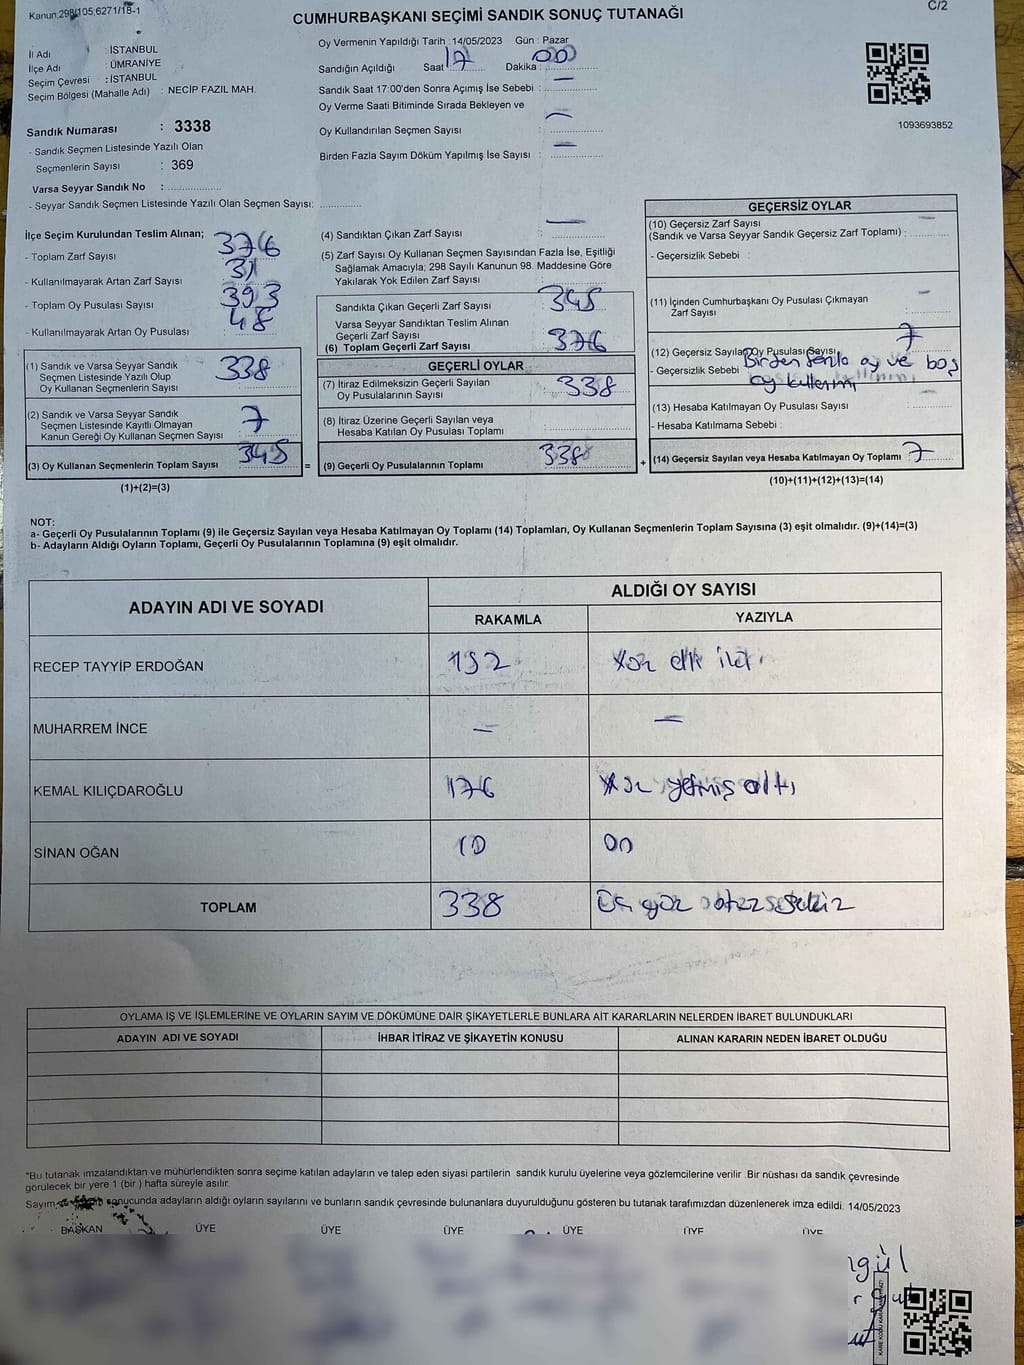 Kanun:298/105;6271/18-1
C/2
CUMHURBAŞKANI SEÇİMİ SANDIK SONUÇ TUTANAĞI
İl Adı : İSTANBUL
İlçe Adı : ÜMRANİYE
Seçim Çevresi : İSTANBUL
Seçim Bölgesi (Mahalle Adı) : NECİP FAZIL MAH.
Sandık Numarası : 3338
- Sandık Seçmen Listesinde Yazılı Olan
Seçmenlerin Sayısı : 369
Varsa Seyyar Sandık No :
- Seyyar Sandık Seçmen Listesinde Yazılı Olan Seçmen Sayısı:
Oy Vermenin Yapıldığı Tarih : 14/05/2023 Gün : Pazar
Sandığın Açıldığı Saat 17 Dakika : 00
Sandık Saat 17:00'den Sonra Açımış İse Sebebi : —
Oy Verme Saati Bitiminde Sırada Bekleyen ve
Oy Kullandırılan Seçmen Sayısı : —
Birden Fazla Sayım Döküm Yapılmış İse Sayısı : —
1093693852
İlçe Seçim Kurulundan Teslim Alınan;
- Toplam Zarf Sayısı 376
- Kullanılmayarak Artan Zarf Sayısı 31
- Toplam Oy Pusulası Sayısı 393
- Kullanılmayarak Artan Oy Pusulası 48
(1) Sandık ve Varsa Seyyar Sandık
Seçmen Listesinde Yazılı Olup
Oy Kullanan Seçmenlerin Sayısı 338
(2) Sandık ve Varsa Seyyar Sandık
Seçmen Listesinde Kayıtlı Olmayan
Kanun Gereği Oy Kullanan Seçmen Sayısı 7
(3) Oy Kullanan Seçmenlerin Toplam Sayısı 345
(1)+(2)=(3)
(4) Sandıktan Çıkan Zarf Sayısı : —
(5) Zarf Sayısı Oy Kullanan Seçmen Sayısından Fazla İse, Eşitliği
Sağlamak Amacıyla; 298 Sayılı Kanunun 98. Maddesine Göre
Yakılarak Yok Edilen Zarf Sayısı :
Sandıkta Çıkan Geçerli Zarf Sayısı 345
Varsa Seyyar Sandıktan Teslim Alınan
Geçerli Zarf Sayısı
(6) Toplam Geçerli Zarf Sayısı 376
=
GEÇERLİ OYLAR
(7) İtiraz Edilmeksizin Geçerli Sayılan
Oy Pusulalarının Sayısı 338
(8) İtiraz Üzerine Geçerli Sayılan veya
Hesaba Katılan Oy Pusulası Toplamı
(9) Geçerli Oy Pusulalarının Toplamı 338
+
GEÇERSİZ OYLAR
(10) Geçersiz Zarf Sayısı
(Sandık ve Varsa Seyyar Sandık Geçersiz Zarf Toplamı) : —
- Geçersizlik Sebebi :
(11) İçinden Cumhurbaşkanı Oy Pusulası Çıkmayan
Zarf Sayısı : —
(12) Geçersiz Sayılan Oy Pusulası Sayısı 7
- Geçersizlik Sebebi Birden fazla oy ve boş
oy kullanımı
(13) Hesaba Katılmayan Oy Pusulası Sayısı : —
- Hesaba Katılmama Sebebi :
(14) Geçersiz Sayılan veya Hesaba Katılmayan Oy Toplamı 7
(10)+(11)+(12)+(13)=(14)
NOT:
a- Geçerli Oy Pusulalarının Toplamı (9) ile Geçersiz Sayılan veya Hesaba Katılmayan Oy Toplamı (14) Toplamları, Oy Kullanan Seçmenlerin Toplam Sayısına (3) eşit olmalıdır. (9)+(14)=(3)
b- Adayların Aldığı Oyların Toplamı, Geçerli Oy Pusulalarının Toplamına (9) eşit olmalıdır.
ADAYIN ADI VE SOYADI
ALDIĞI OY SAYISI
RAKAMLA YAZIYLA
RECEP TAYYİP ERDOĞAN 152 Yüz elli iki
MUHARREM İNCE — —
KEMAL KILIÇDAROĞLU 176 Yüz yetmiş altı
SİNAN OĞAN 10 On
TOPLAM 338 Üç yüz otuz sekiz
OYLAMA İŞ VE İŞLEMLERİNE VE OYLARIN SAYIM VE DÖKÜMÜNE DAİR ŞİKAYETLERLE BUNLARA AİT KARARLARIN NELERDEN İBARET BULUNDUKLARI
ADAYIN ADI VE SOYADI İHBAR İTİRAZ VE ŞİKAYETİN KONUSU ALINAN KARARIN NEDEN İBARET OLDUĞU
*Bu tutanak imzalandıktan ve mühürlendikten sonra seçime katılan adayların ve talep eden siyasi partilerin sandık kurulu üyelerine veya gözlemcilerine verilir .Bir nüshası da sandık çevresinde
görülecek bir yere 1 (bir ) hafta süreyle asılır.
Sayım sonucunda adayların aldığı oyların sayılarını ve bunların sandık çevresinde bulunanlara duyurulduğunu gösteren bu tutanak tarafımızdan düzenlenerek imza edildi. 14/05/2023
BAŞKAN ÜYE ÜYE ÜYE ÜYE ÜYE ÜYE